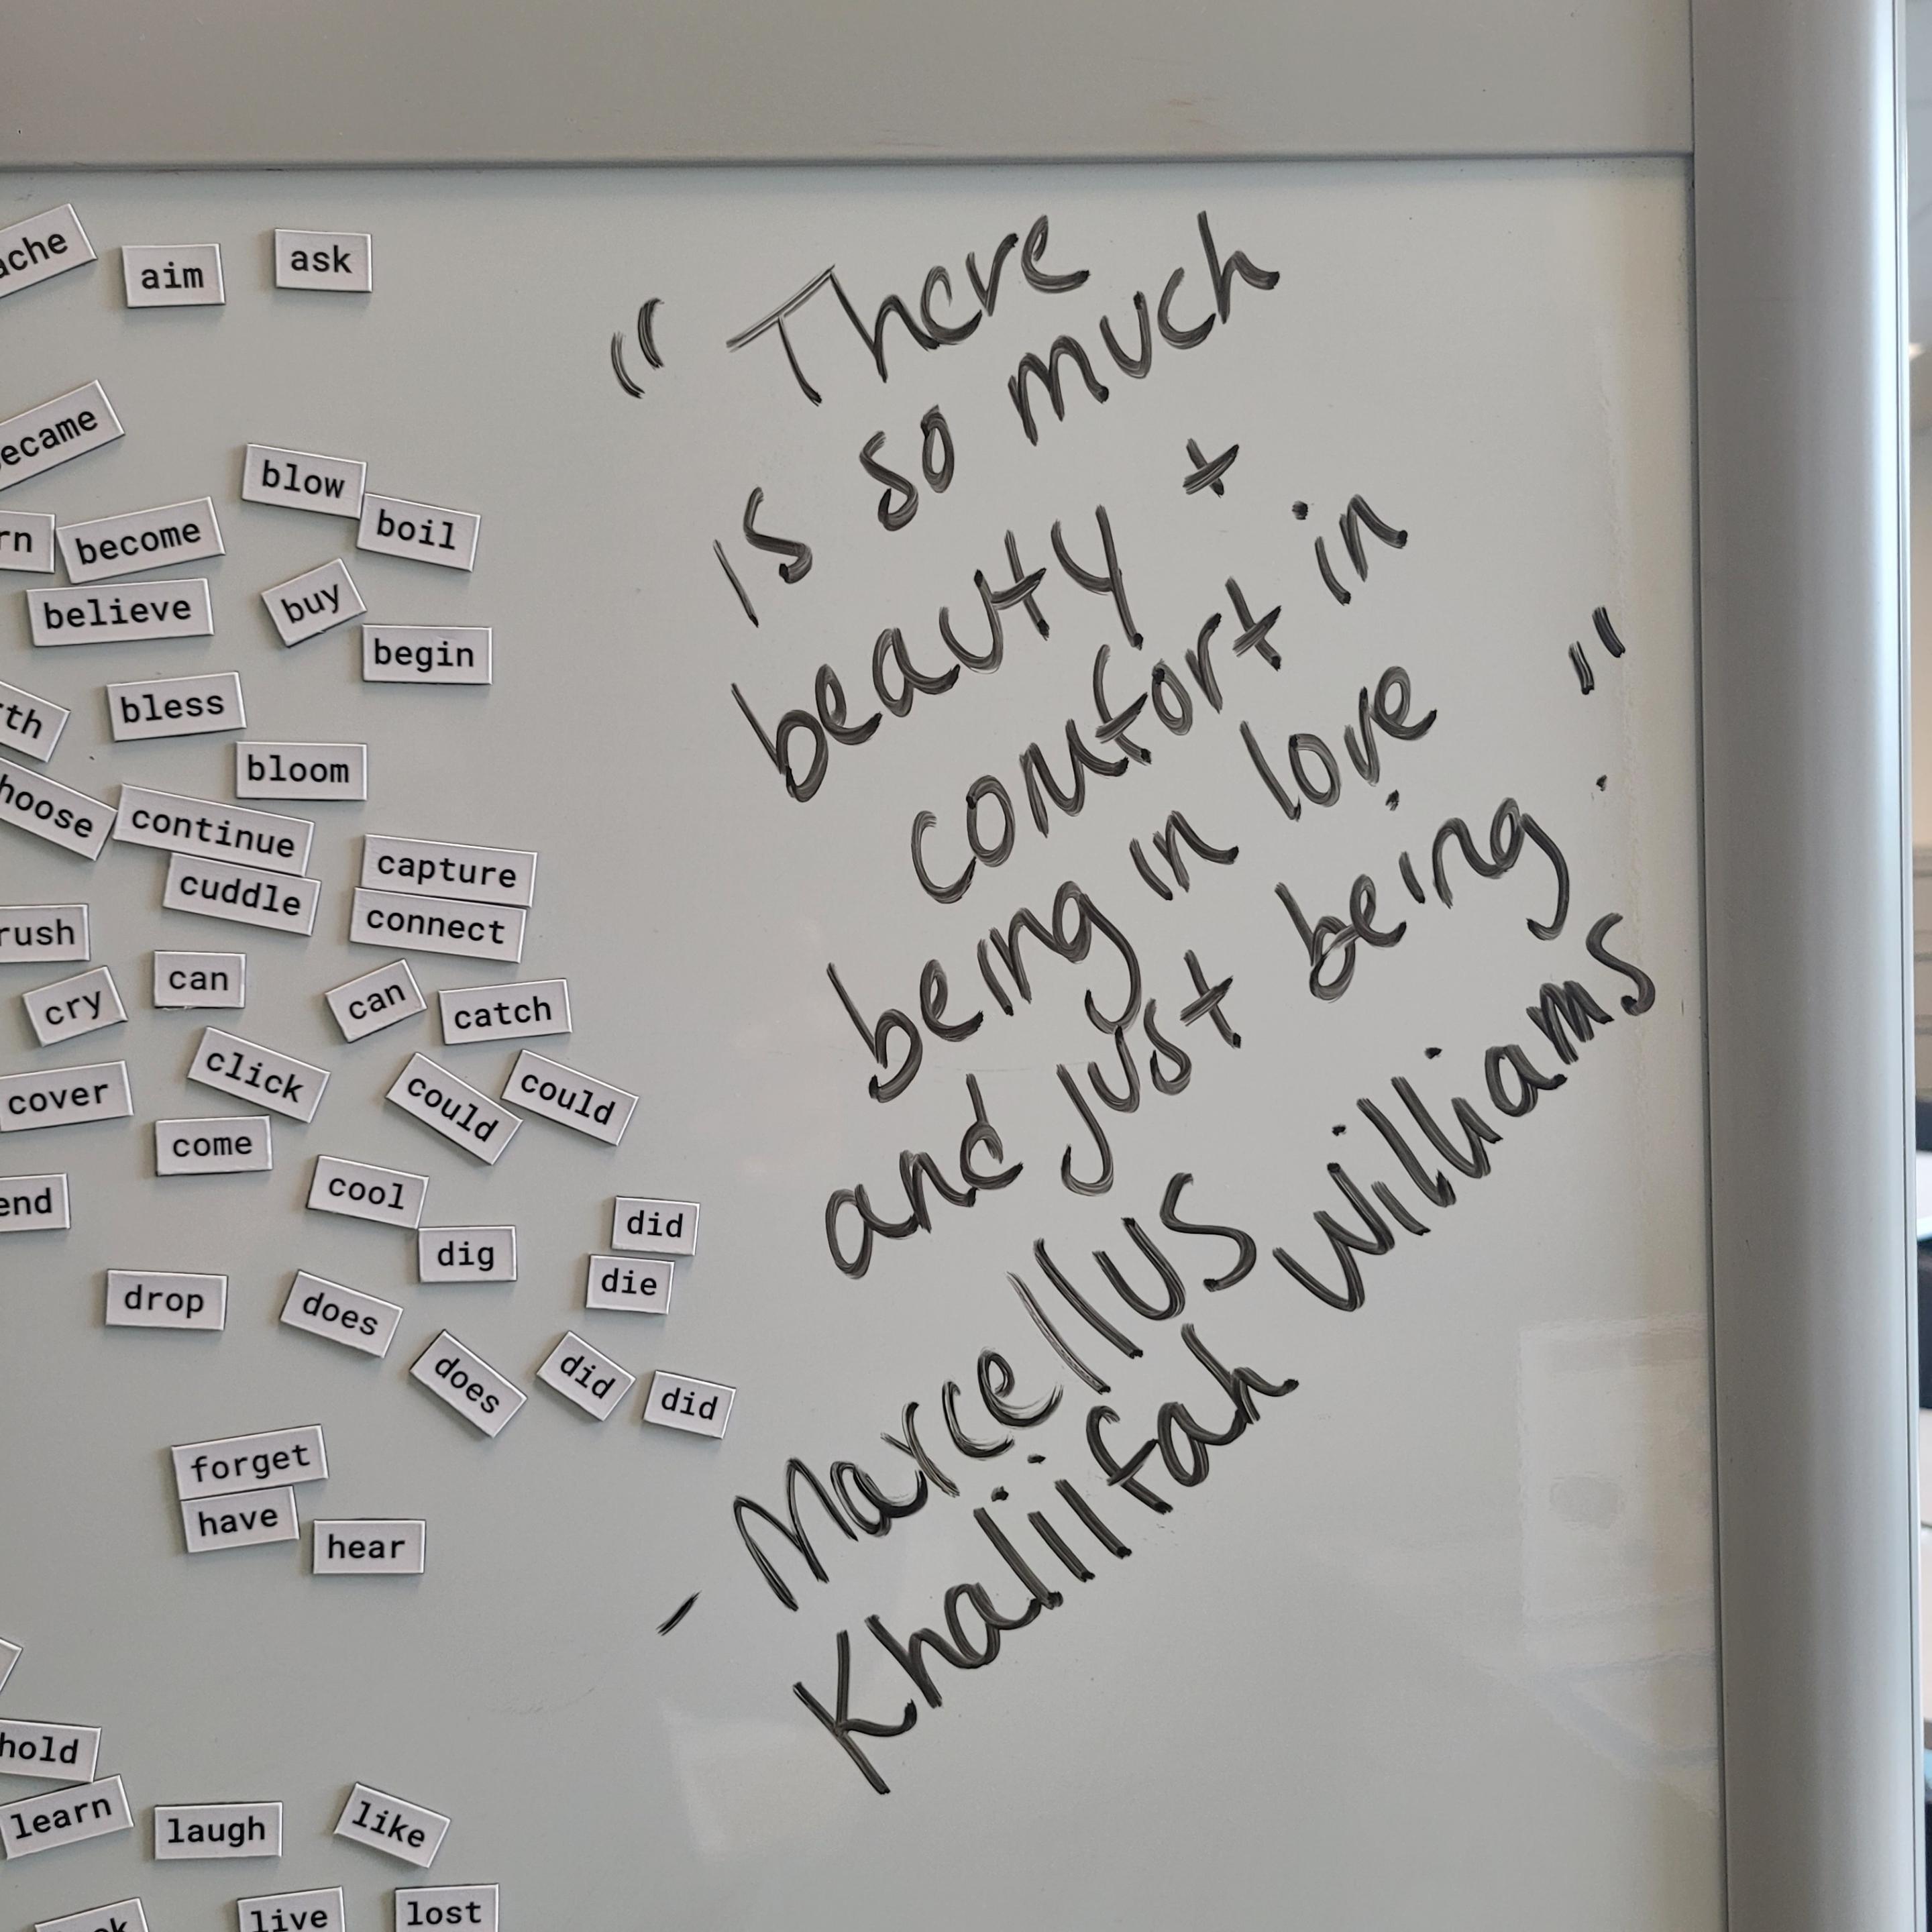 aim ask
blow
boil
become
believe buy
begin
bless
bloom
continue
capture
cuddle
connect
can
cry can catch
click
cover could could
come
cool
did
dig
die
drop does
does did did
forget
have
hear
hold
learn laugh like
live lost
" There
is so much
beauty +
comfort in
being in love "
and just being .
- Marcellus
Khaliifah Williams